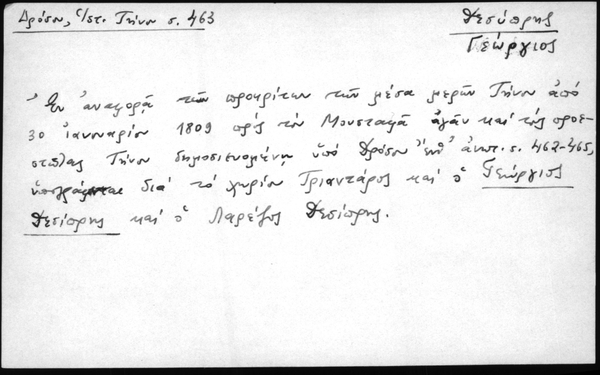 Δρόσου, Ἱστ. Τήνου σ. 463
Δεσύπρης
Γεώργιος
Ἐν ἀναφορᾷ τῶν προκρίτων τῶν μέσα μερῶν Τήνου ἀπό
30 ἰανουαρίου 1809 πρός τόν Μουσταφᾶ ἀγᾶν καί τούς προε-
στῶτας Τήνου δημοσιευομένῃ ὑπό Δρόσου ἔνθ' ἀνωτ. σ. 462-465,
ὑπογράφεται διά τό χωρίον Τριαντάρος καί ὁ Γεώργιος
Δεσίπρης καί ὁ Λαρέζος Δεσίπρης.